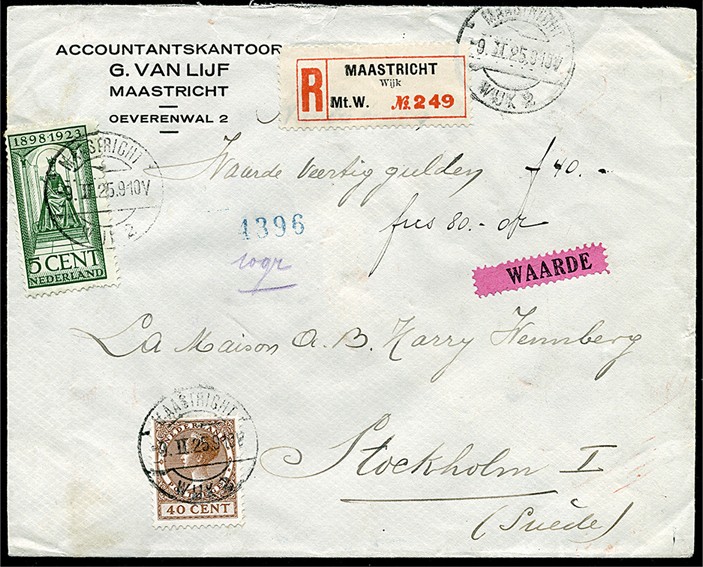 ACCOUNTANTSKANTOOR
G. VAN LIJF
MAASTRICHT
OEVERENWAL 2
R
MAASTRICHT
Wijk
Mt.W. № 249
MAASTRICHT
9.II.25.9-10V
WIJK 2
1898 1923
5 CENT
NEDERLAND
MAASTRICHT
9.II.25.9-10V
WIJK 2
Waarde veertig gulden f 40.-
frcs 80.- or
1396
10 gr
WAARDE
La Maison A. B. Harry Wennberg
Stockholm I
(Suède)
MAASTRICHT
9.II.25.9
WIJK 2
NEDERLAND
40 CENT